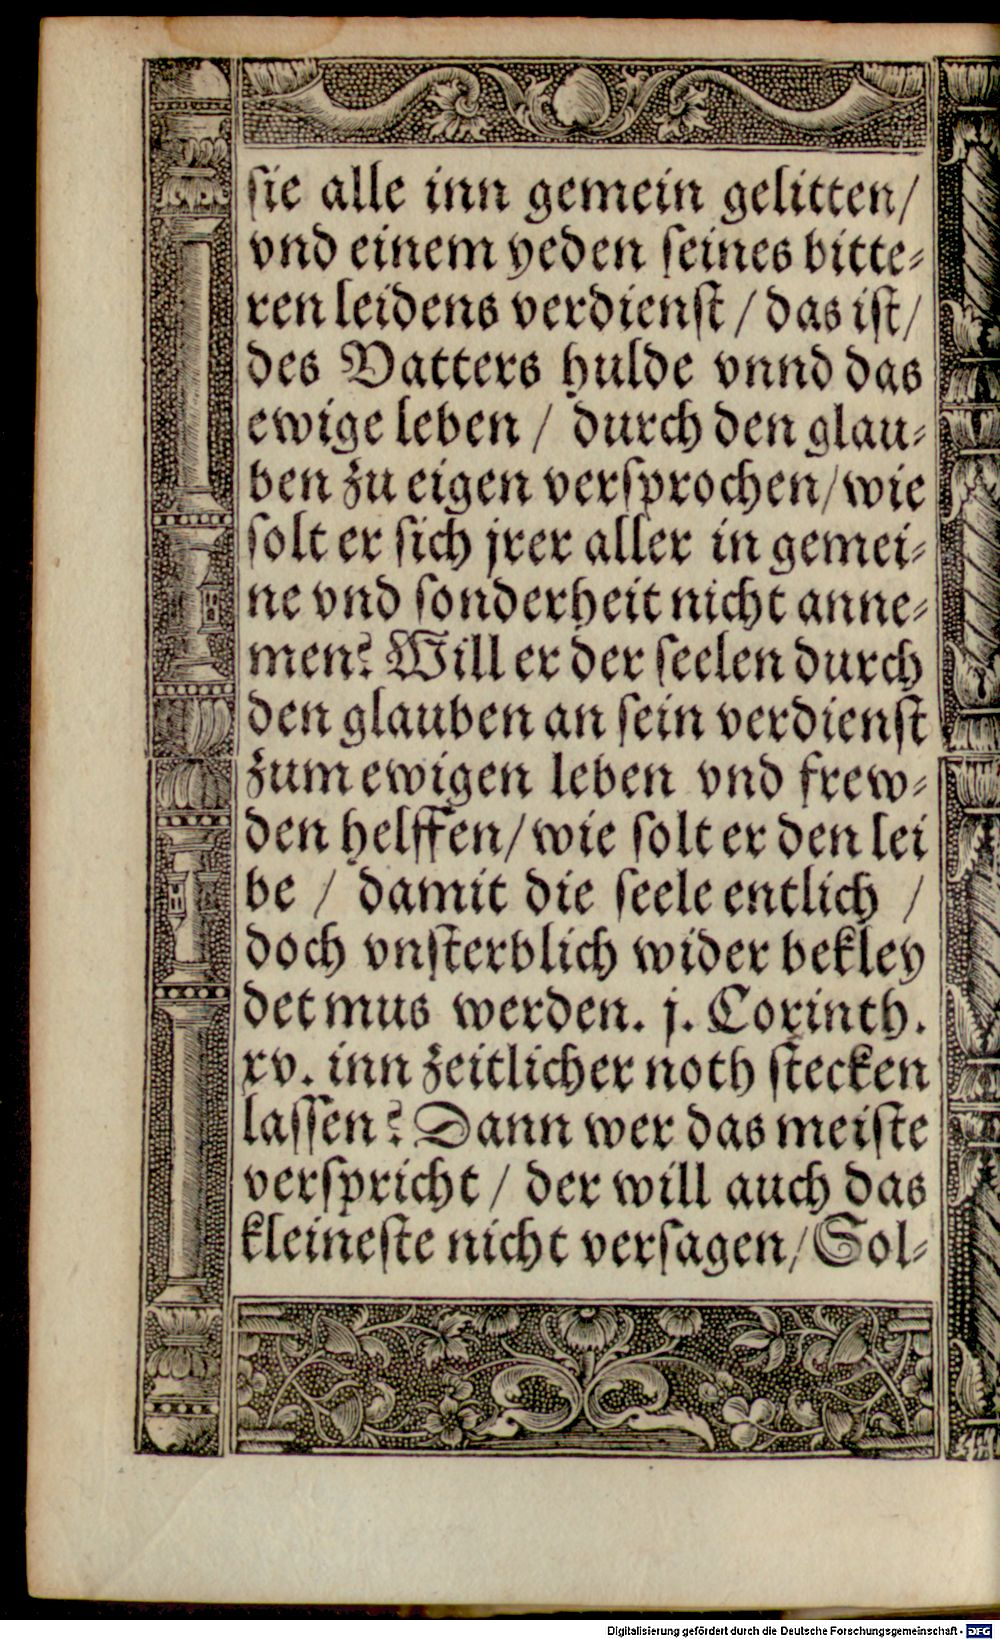 sie alle inn gemein gelitten/
vnd einem yeden seines bitte⸗
ren leidens verdienst / das ist/
des Vatters hulde vnnd das
ewige leben / durch den glau⸗
ben zu eigen versprochen/wie
solt er sich jrer aller in gemei⸗
ne vnd sonderheit nicht anne⸗
men? Will er der seelen durch
den glauben an sein verdienst
zum ewigen leben vnd frew⸗
den helffen/wie solt er den lei
be / damit die seele entlich /
doch vnsterblich wider bekley
det mus werden. j. Corinth.
xv. inn zeitlicher noth stecken
lassen? Dann wer das meiste
verspricht / der will auch das
kleineste nicht versagen/Sol⸗
Digitalisierung gefördert durch die Deutsche Forschungsgemeinschaft - DFG